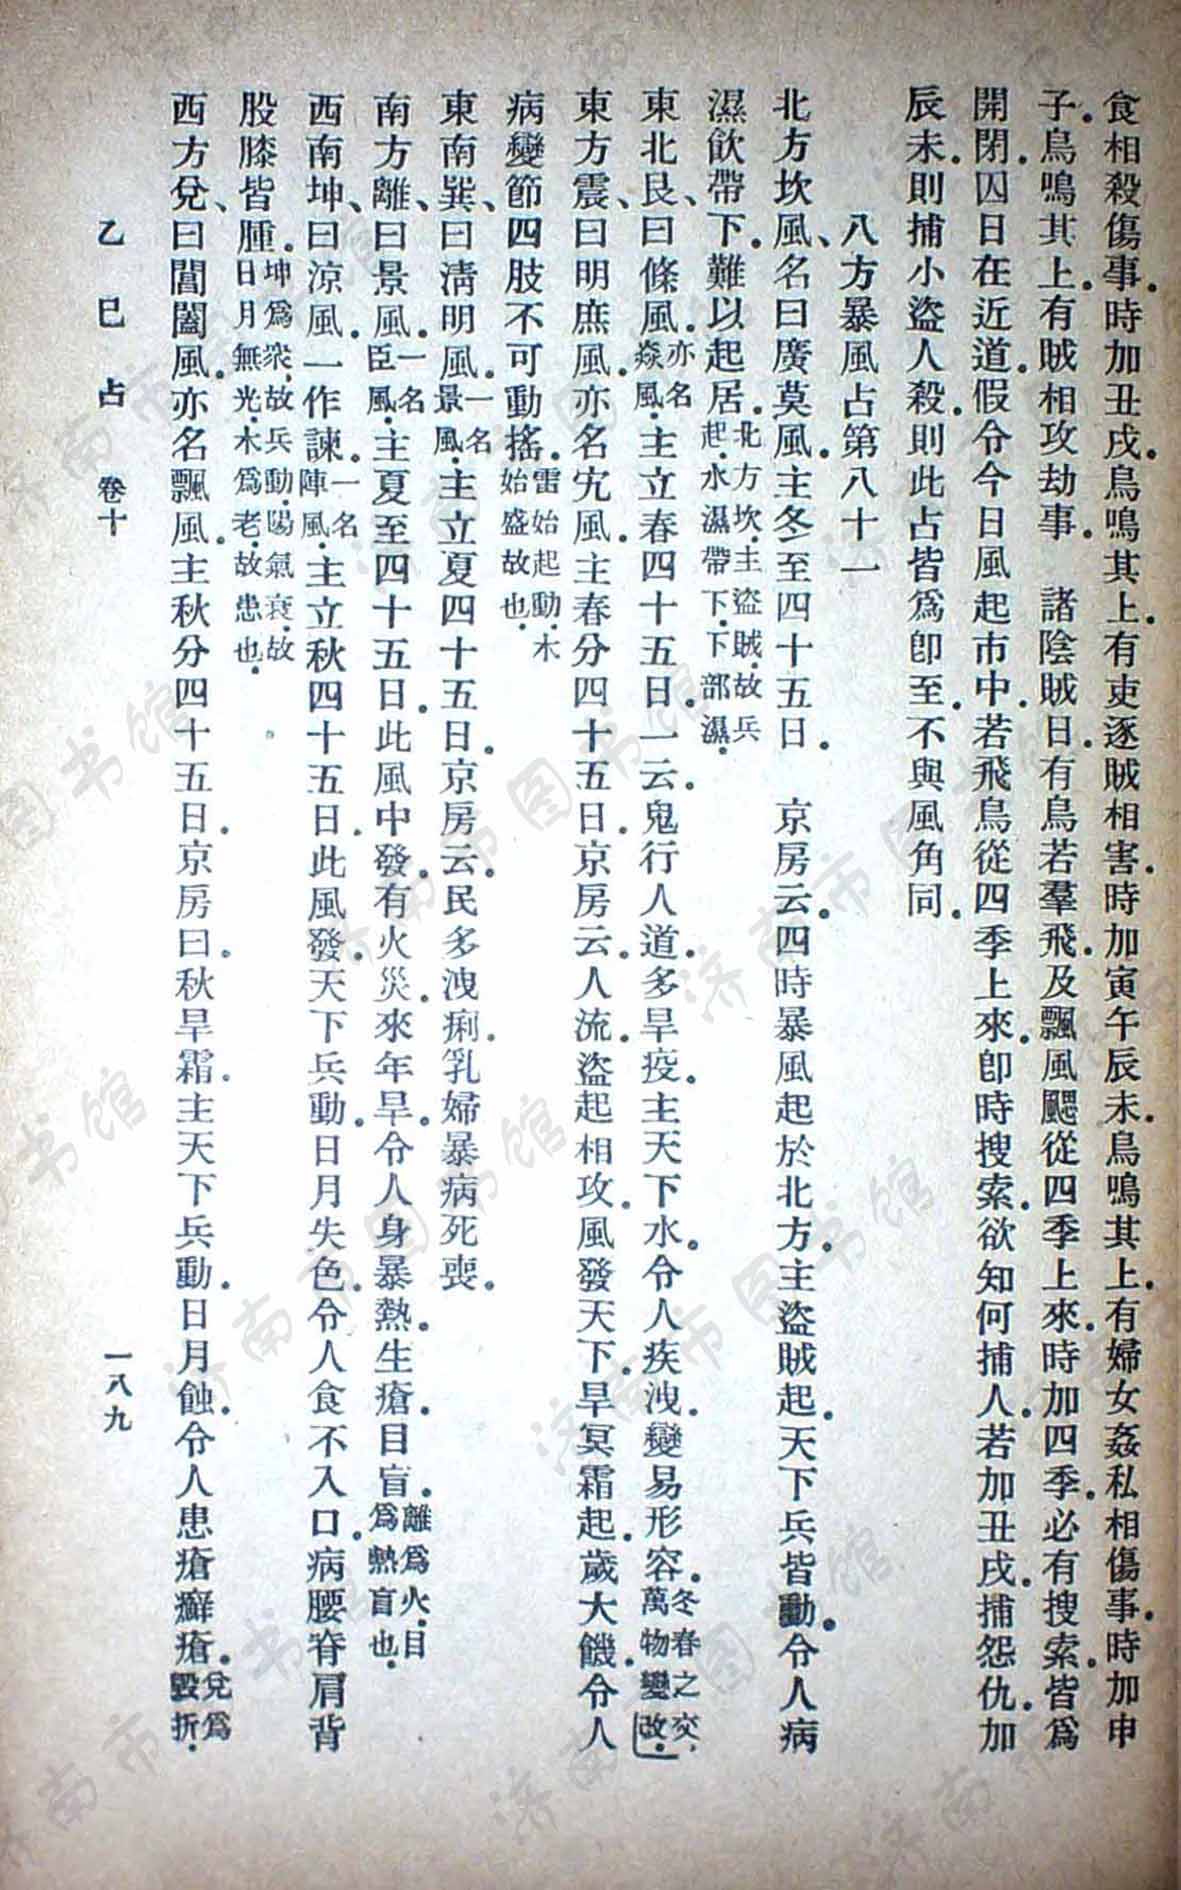 食相殺傷事。時加丑戌。鳥鳴其上。有吏逐賊相害。時加寅午辰未。鳥鳴其上。有婦女姦私相傷事。時加申
子。鳥鳴其上。有賊相攻劫事。　諸陰賊日。有鳥若羣飛。及飄風颸從四季上來。時加四季。必有搜索。皆爲
開閉。囚日在近道。假令今日風起市中。若飛鳥從四季上來。卽時搜索。欲知何捕人。若加丑戌。捕怨仇。加
辰未。則捕小盜人殺。則此占皆爲卽至。不與風角同。
八方暴風占第八十一
北方坎、風名曰廣莫風。主冬至四十五日。　京房云。四時暴風起於北方。主盜賊起。天下兵皆動。令人病
濕飲帶下。難以起居。北方坎、主盜賊、故兵起、水濕帶下、下部濕。
東北艮、曰條風。亦名焱風。主立春四十五日。一云。鬼行人道。多旱疫。主天下水。令人疾洩。變易形容。冬春之交、萬物變改。
東方震、曰明庶風。亦名宄風。主春分四十五日。京房云。人流。盜起相攻。風發天下。旱冥霜起。歲大饑。令人
病變節。四肢不可動搖。雷始起動、木始盛故也。
東南巽、曰清明風。一名景風。主立夏四十五日。京房云。民多洩痢。乳婦暴病死喪。
南方離、曰景風。一名臣風。主夏至四十五日。此風中發。有火災。來年旱。令人身暴熱。生瘡。目盲。離爲火、目爲熱盲也。
西南坤、曰涼風。一作諫。一名陣風。主立秋四十五日。此風發。天下兵動。日月失色。令人食不入口。病腰脊肩背
股膝皆腫。坤爲衆、故兵動、陽氣衰、故日月無光、木爲老、故患也。
西方兌、曰閶闔風。亦名飄風。主秋分四十五日。京房曰。秋旱霜。主天下兵動。日月蝕。令人患瘡癬瘡。兌爲毀折。
乙巳占　卷十　一八九
济南市图书馆